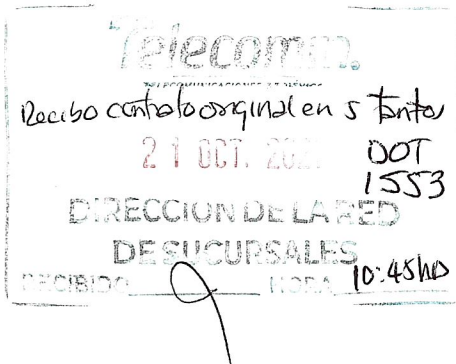 Telecomm.
TELECOMUNICACIONES DE MÉXICO
Recibo contrato original en 5 tantos
21 OCT. 202
DOT
1553
DIRECCION DE LA RED
DE SUCURSALES
RECIBIDO HORA 10:45 hrs